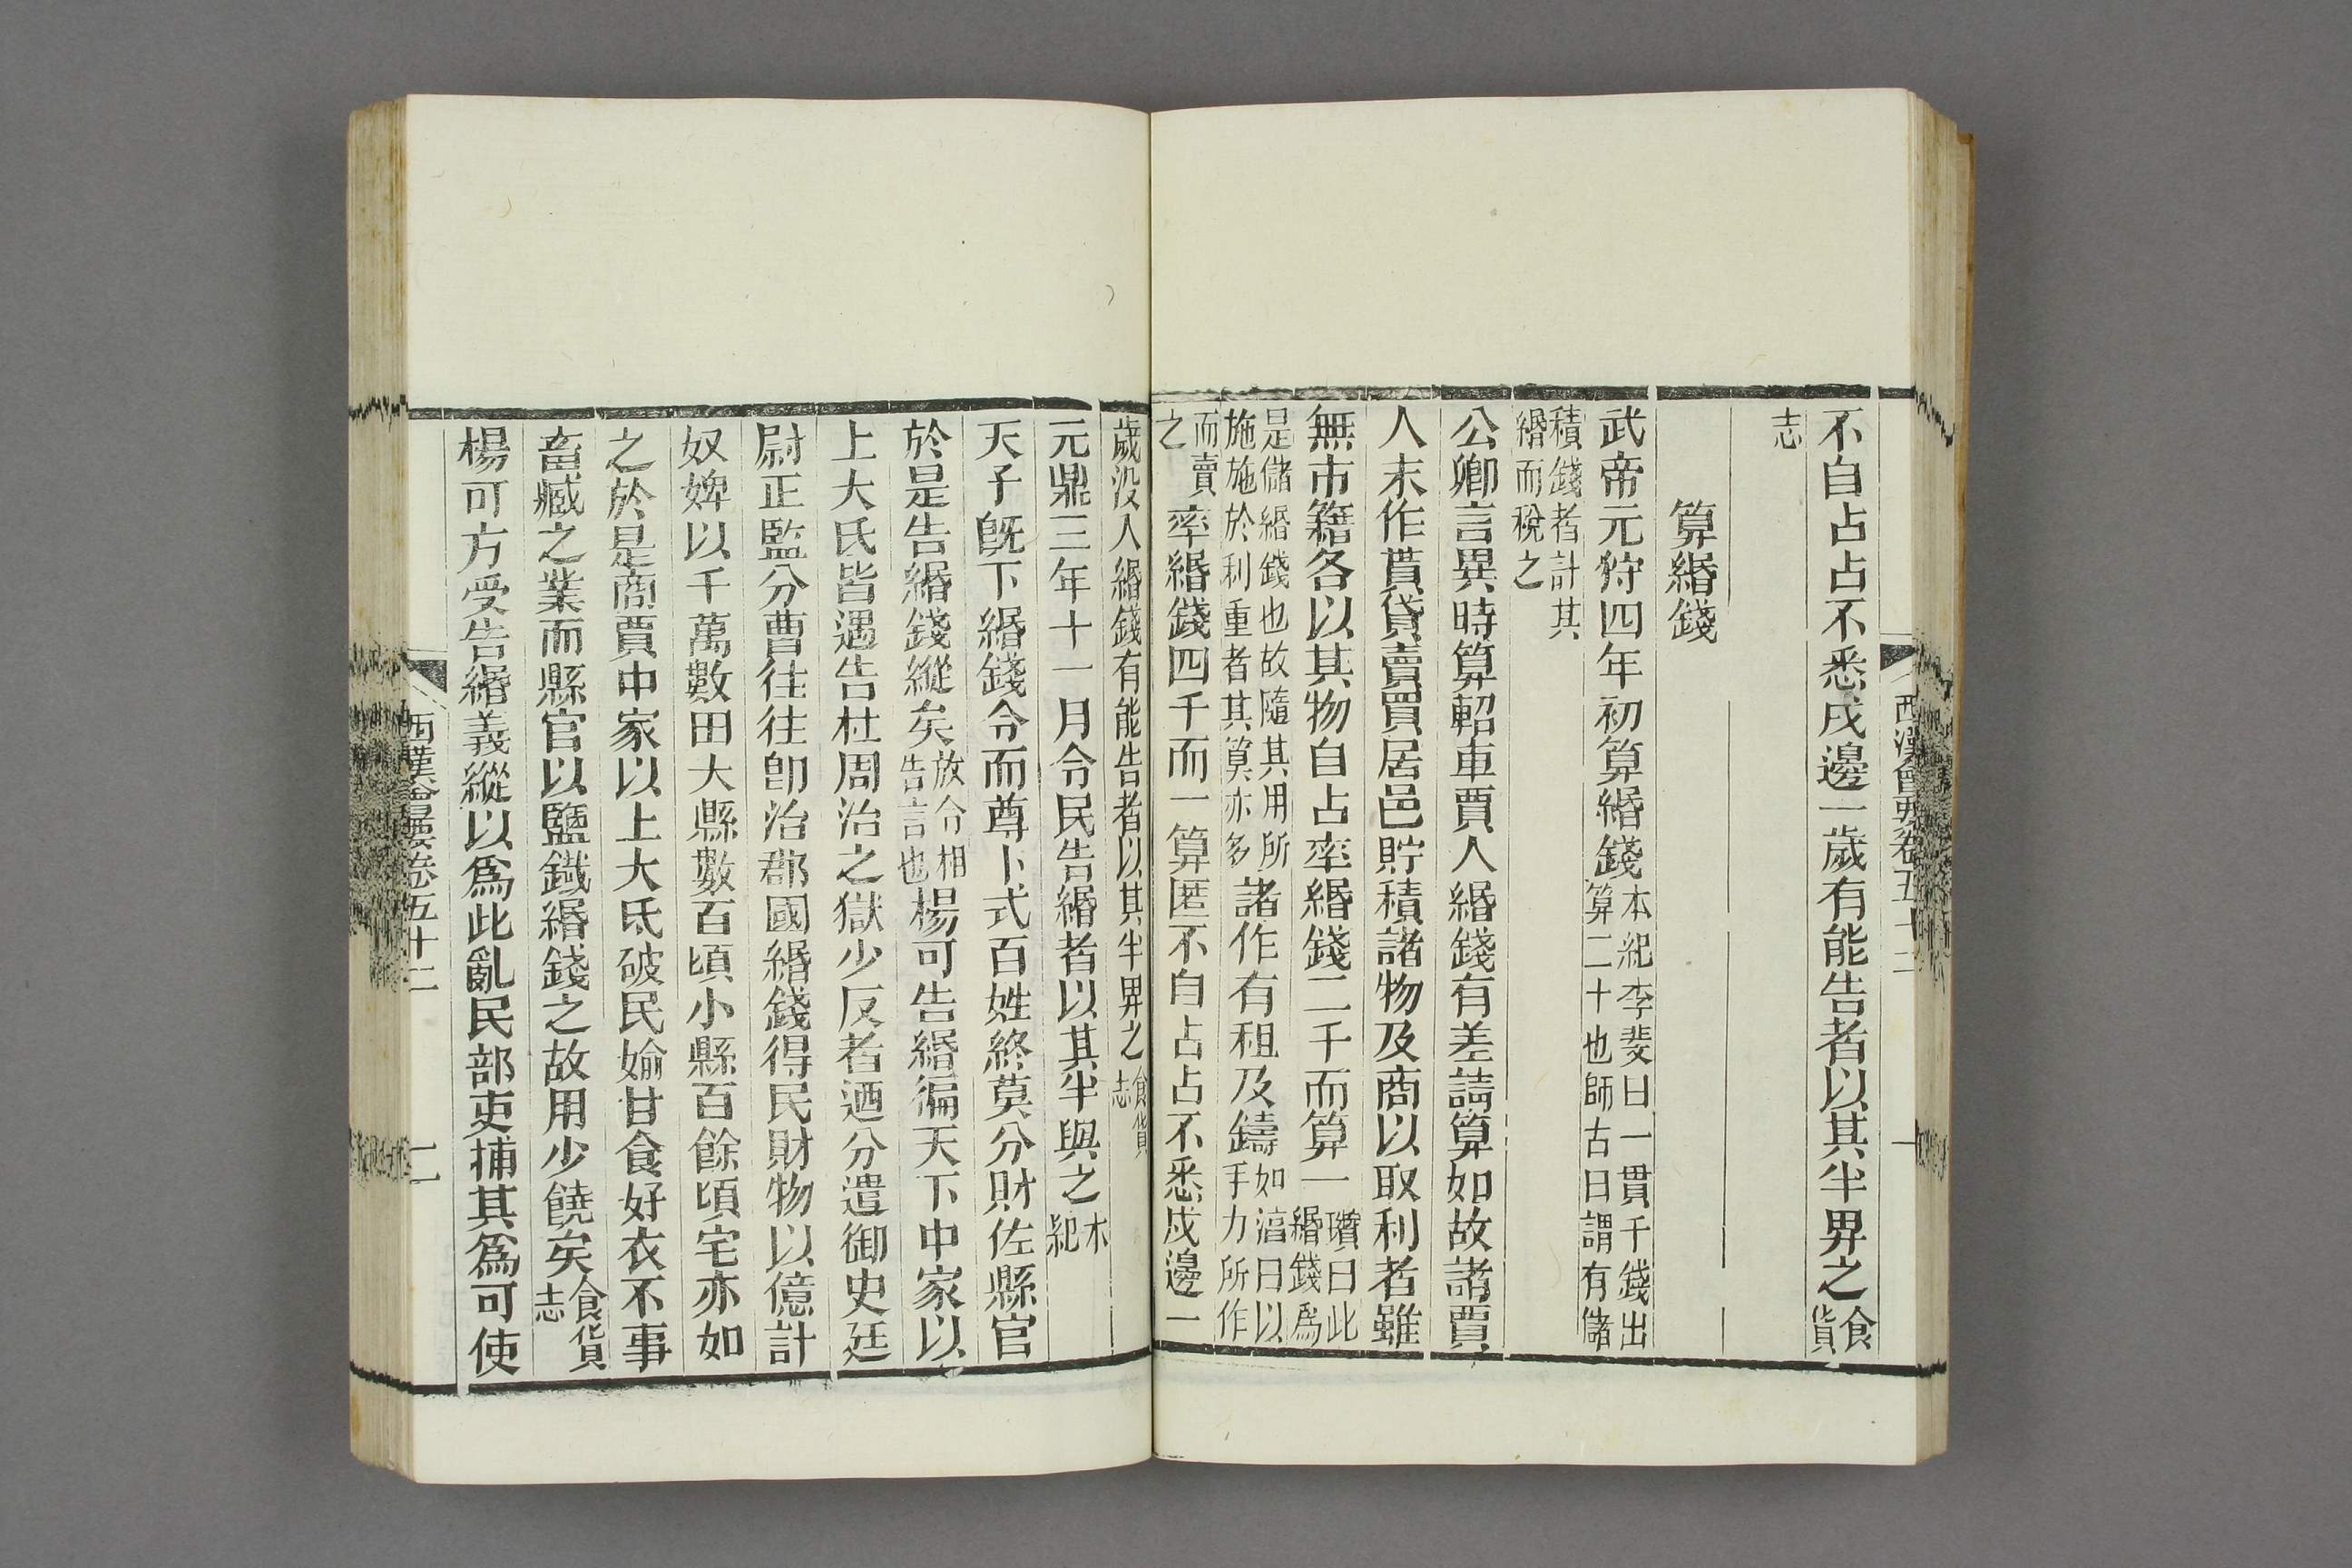 西漢會要卷五十二
一
不自占占不悉戍邊一歲有能告者以其半畀之食貨
志
算緡錢
武帝元狩四年初算緡錢本紀李斐曰一貫千錢出算二十也師古曰謂有儲
積錢者計其緡而稅之
公卿言異時算軺車賈人緡錢有差請算如故諸賈
人末作貰貸賣買居邑貯積諸物及商以取利者雖
無市籍各以其物自占率緡錢二千而算一瓚曰此緡錢爲
是儲緡錢也故隨其用所施施於利重者其算亦多諸作有租及鑄如淳曰以手力所作
而賣之率緡錢四千而一算匿不自占占不悉戍邊一
歲沒入緡錢有能告者以其半畀之食貨志
元鼎三年十一月令民告緡者以其半與之本紀
天子旣下緡錢令而尊卜式百姓終莫分財佐縣官
於是告緡錢縱矣放令相告言也楊可告緡徧天下中家以
上大氐皆遇告杜周治之獄少反者迺分遣御史廷
尉正監分曹往往卽治郡國緡錢得民財物以億計
奴婢以千萬數田大縣數百頃小縣百餘頃宅亦如
之於是商賈中家以上大氐破民媮甘食好衣不事
畜臧之業而縣官以鹽鐵緡錢之故用少饒矣食貨志
楊可方受告緡義縱以爲此亂民部吏捕其爲可使
西漢會要卷五十二
二